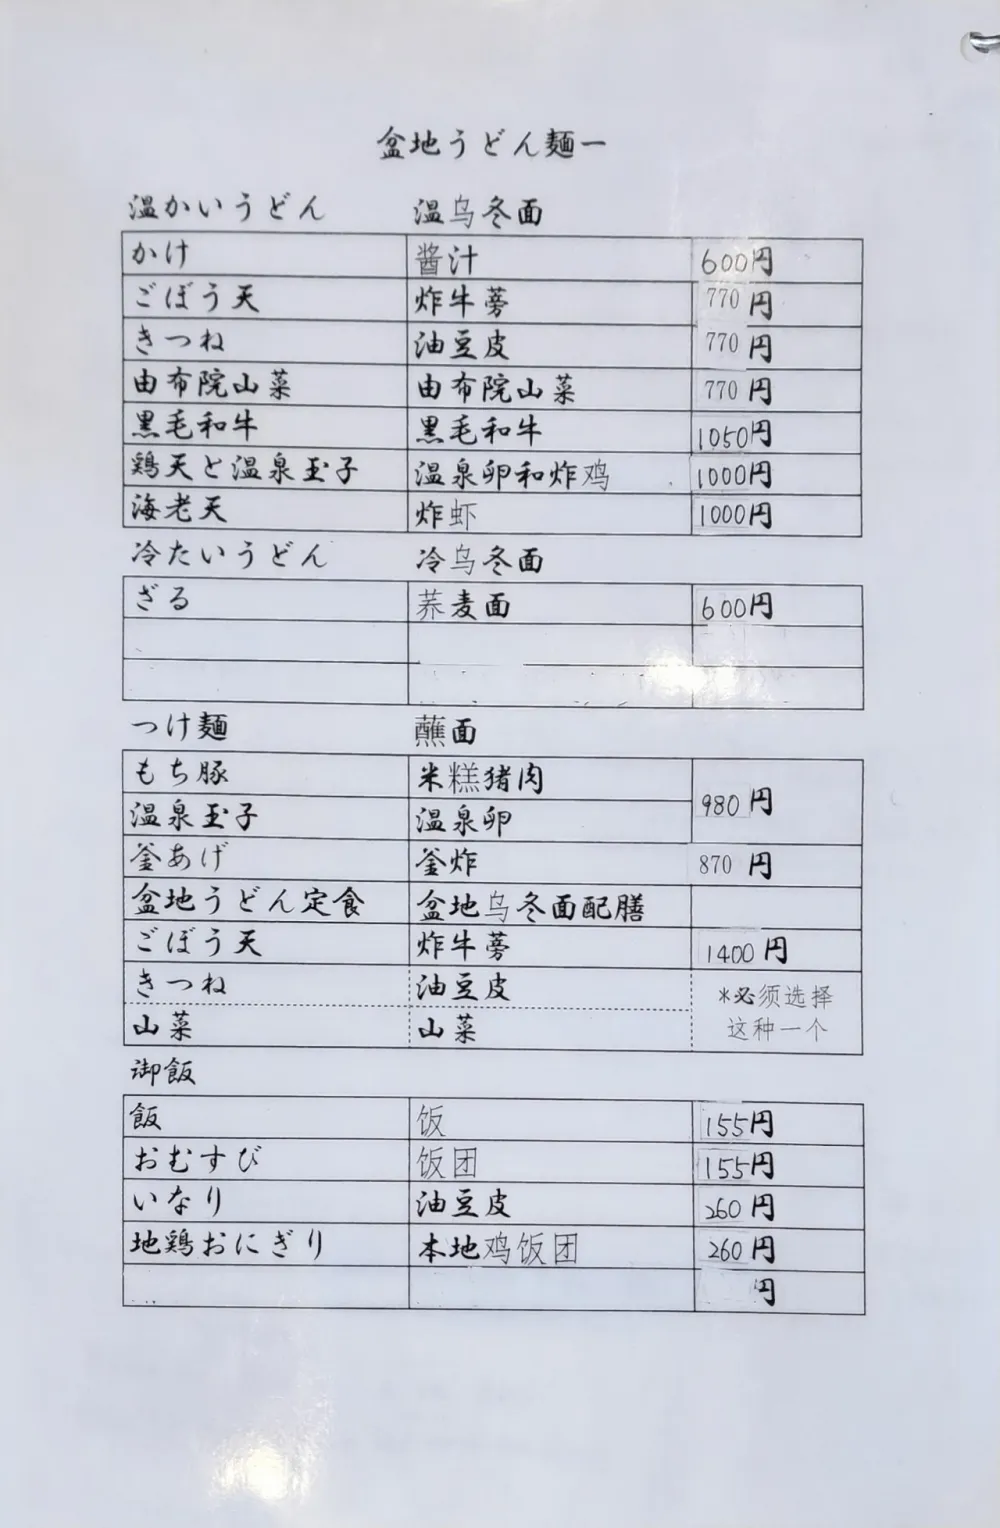 盆地うどん麺一
温かいうどん 温乌冬面
かけ 酱汁 600円
ごぼう天 炸牛蒡 770円
きつね 油豆皮 770円
由布院山菜 由布院山菜 770円
黒毛和牛 黒毛和牛 1050円
鶏天と温泉玉子 温泉卵和炸鸡 1000円
海老天 炸虾 1000円
冷たいうどん 冷乌冬面
ざる 荞麦面 600円
つけ麺 蘸面
もち豚 米糕猪肉 980円
温泉玉子 温泉卵
釜あげ 釜炸 870円
盆地うどん定食 盆地乌冬面配膳
ごぼう天 炸牛蒡 1400円
きつね 油豆皮 *必须选择
山菜 山菜 这种一个
御飯
飯 饭 155円
おむすび 饭团 155円
いなり 油豆皮 260円
地鶏おにぎり 本地鸡饭团 260円
円